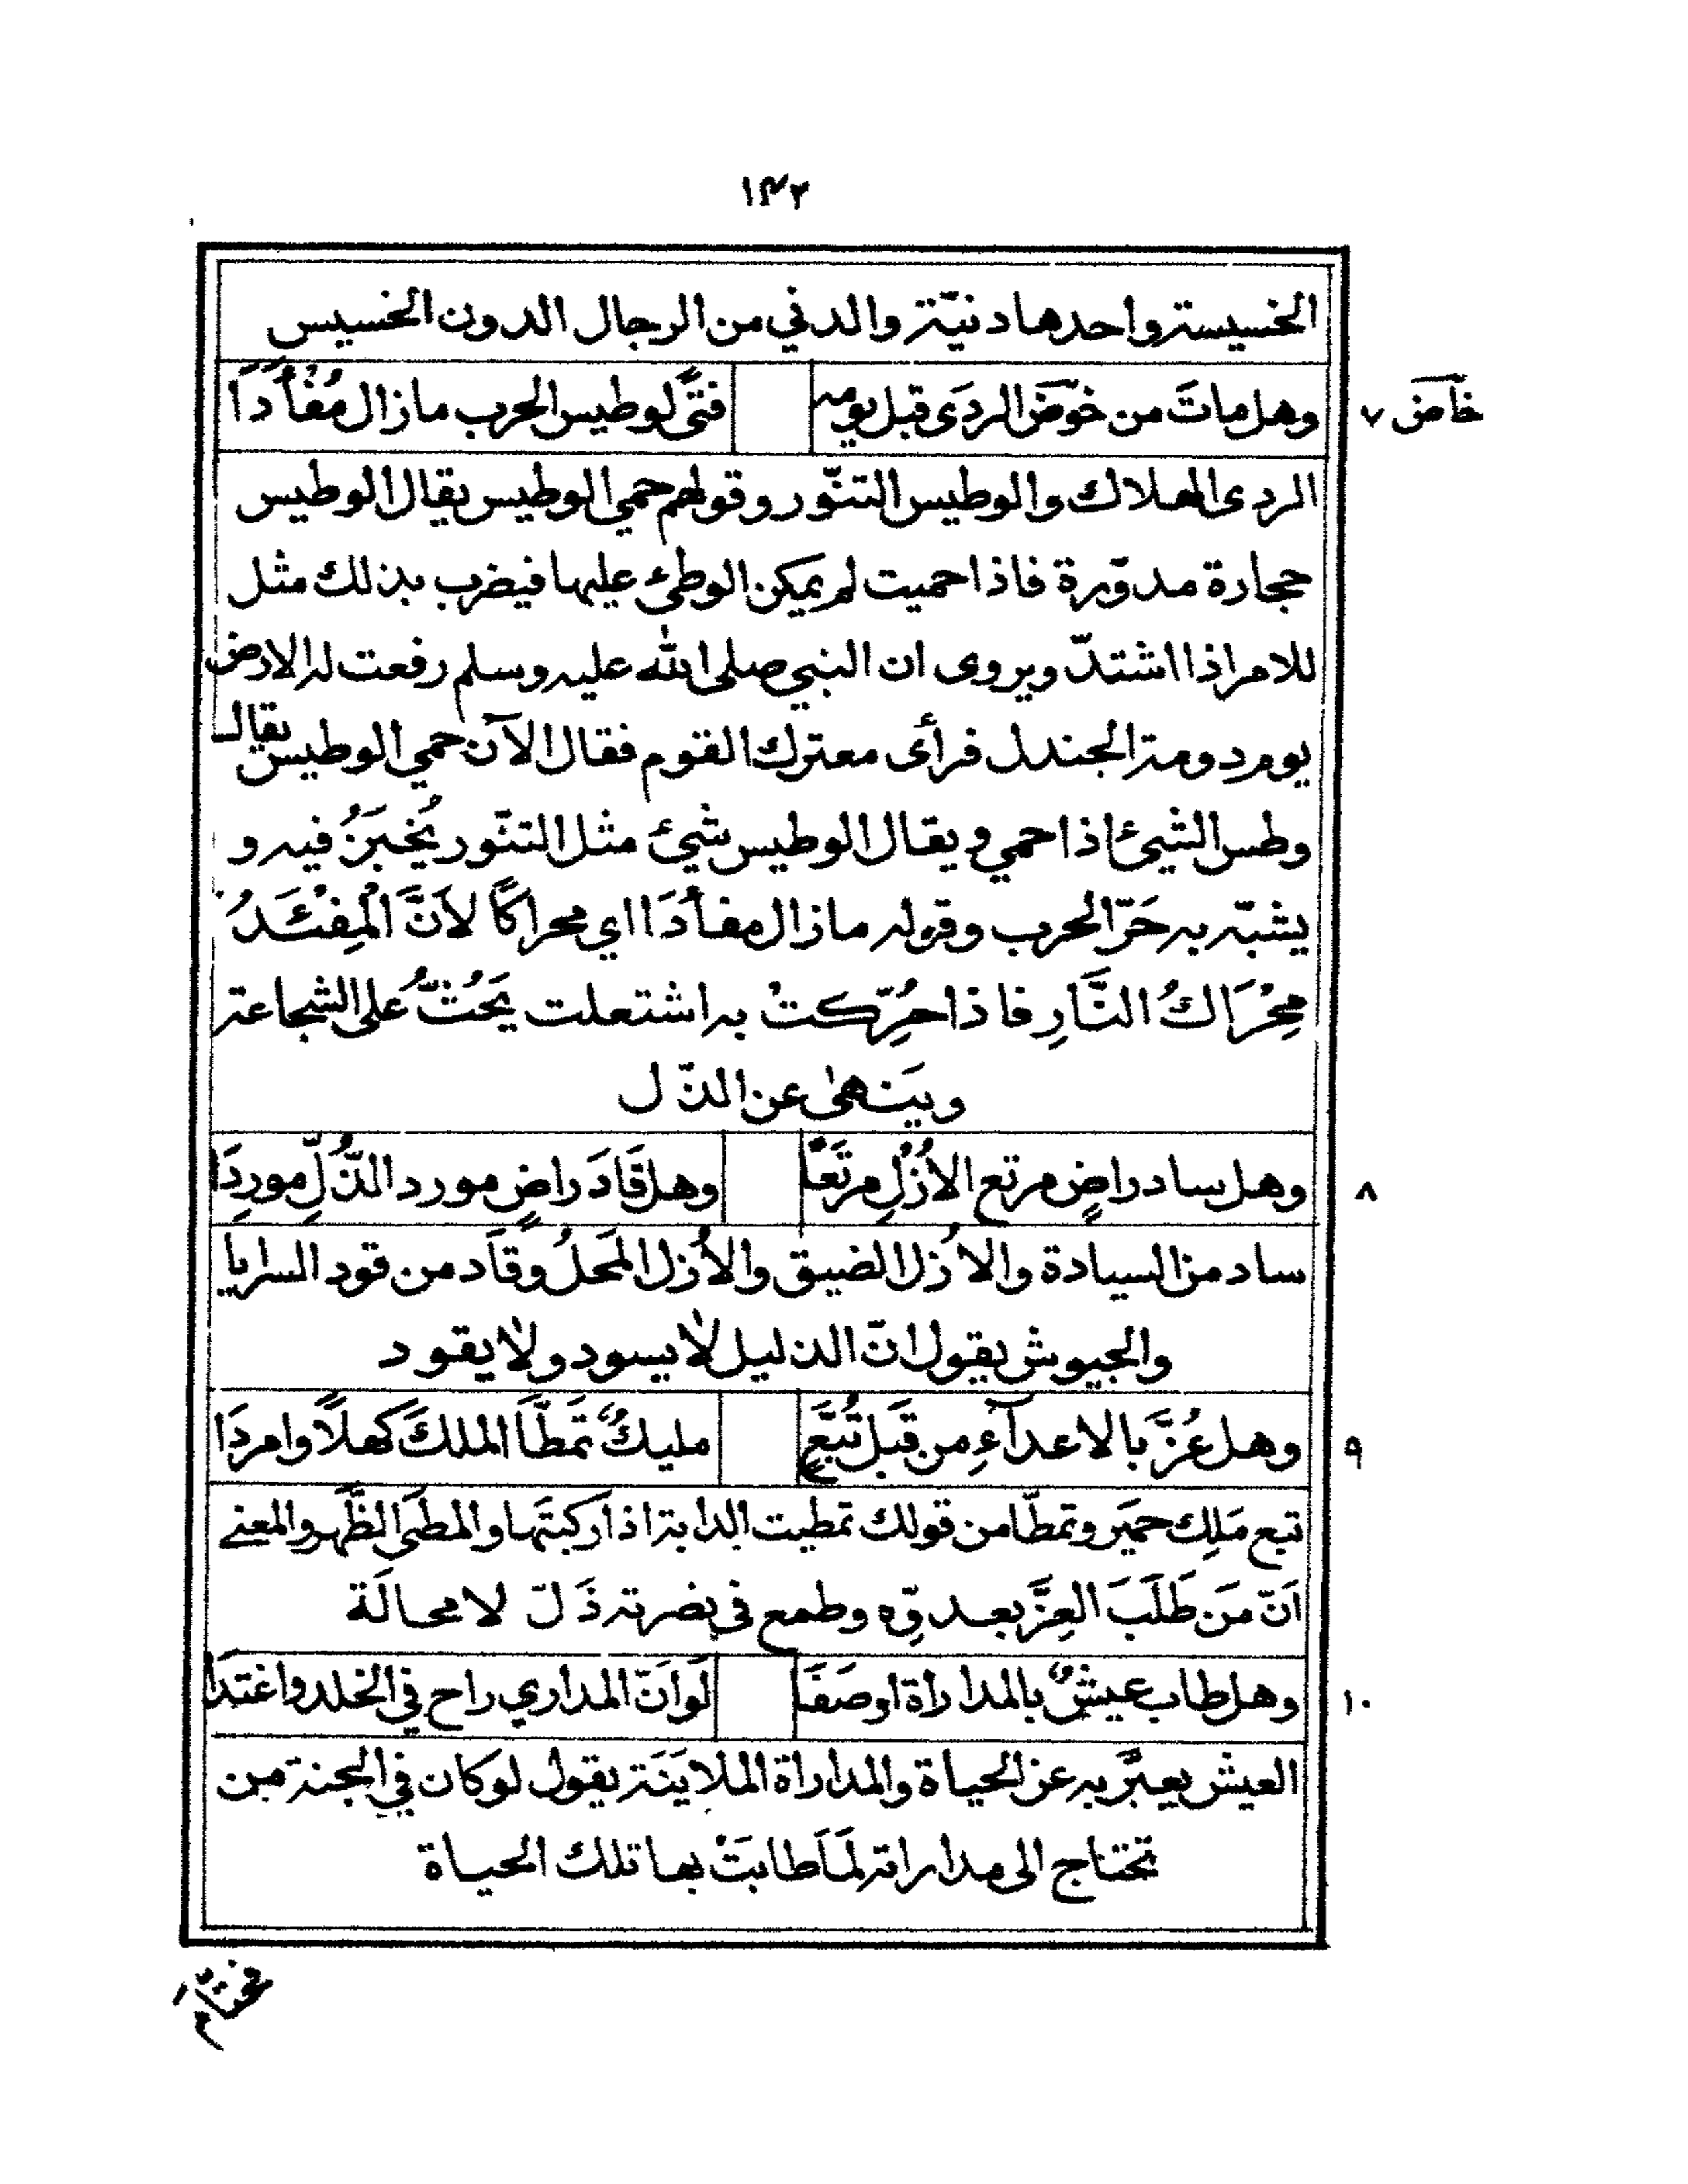 ١٤٢
الخسيسة واحدها دنيّة والدني من الرجال الدون الخسيس
وهل ماتَ من خوّض الردَى قبل يومه فتًى لوطيس الحرب مازال مُفْأَدَا
خاض ٧
الردى الهلاك والوطيس التنّور وقولهم حمي الوطيس يقال الوطيس
حجارة مدوّرة فاذا حميت لم يمكن الوطئ عليها فيضرب بذلك مثل
للامر اذا اشتدّ ويروى ان النبي صلى الله عليه وسلم رفعت له الارض
يوم دومة الجندل فرأى معترك القوم فقال الآن حمي الوطيس يقال
وطس الشيئ اذا حمي ويقال الوطيس شيئ مثل التنّور يُخبَزُ فيه و
يشبّه به حَرّ الحرب وقوله مازال مفأدَا اي محراكًا لأنَّ الْمِفْئَدُ
مِحْرَاكُ النَّارِ فاذا حُرِّكتْ به اشتعلت يَحُثُّ على الشجاعة
وينهىٰ عن الذّل
وهل ساد راضٍ مرتع الأَزْلِ مرتَعًا وهل قَادَ راضٍ مورد الذُّلِّ موردَا
٨
ساد من السيادة والأزل الضيق والأزل المَحلُ وقَاد من قود السرايا
والجيوش يقول انّ الذليل لا يسود ولا يقود
وهل عُزَّ بالاعدآءِ من قَبل تُبَّعٍ مليكٌ تمَطَّا الملكَ كهلاً وامردَا
٩
تبع مَلِك حميَر وتمطّا من قولك تمطيت الدابة اذا ركبتَها والمطى الظَّهر والمعنى
اَنّ مَن طَلَبَ العِزَّ بعدوّه وطمع في نصرته ذَلّ لا محالَة
وهل طاب عيشٌ بالمداراة او صَفَا لَو اَنّ المداري راح في الخلد واغتدَا
١٠
العيش يعبَّر به عن الحياة والمداراة الملايَنَة يقول لو كان في الجنة من
تحتاج الى مداراته لمَا طابتْ بها تلك الحياة